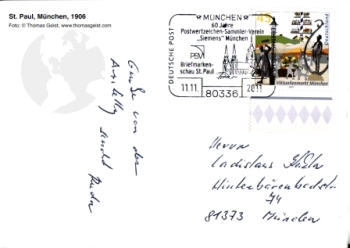 St. Paul, München, 1906
Foto: © Thomas Geist, www.thomasgeist.com
Grüße von der
DEUTSCHE POST
MÜNCHEN
60 Jahre
Postwertzeichen-Sammler-Verein
"Siemens" München
PSV
Briefmarken-
schau St. Paul
11.11. 2011
80336
45
Deutschland
Viktualienmarkt München
Herrn
Ladislaus
74
81373 München